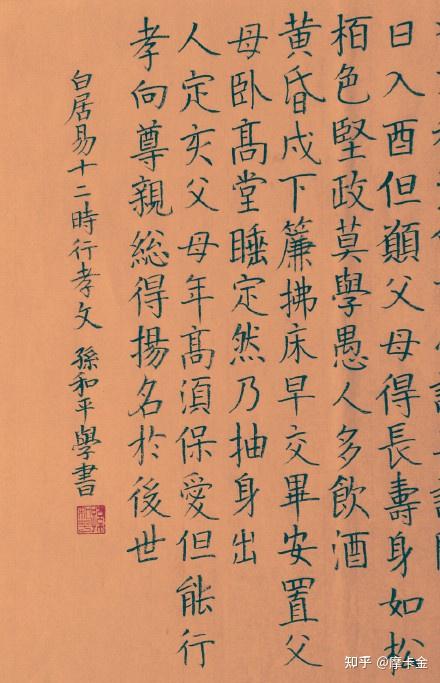 日入酉但顛父母得長壽身如松
栢色堅政莫學愚人多飲酒
黄昏戍下簾拂床早交畢安置父
母卧髙堂睡定然乃抽身出
人定亥父母年髙湏保愛但能行
孝向尊親総得揚名於後世
白居易十二時行孝文 孫和平學書
知乎 @摩卡金